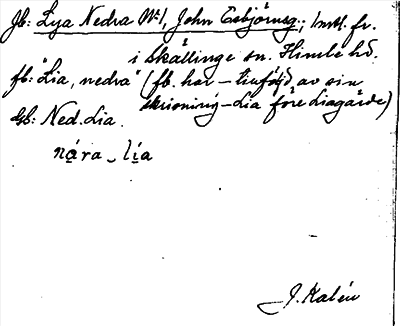 Jb: Lya Nedra No 1, John Esbjörnsg.; 1 mtl. fr.
i Skällinge sn. Himle hd.
fb: "Lia, nedra" (fb. har av sin
skrivning Lia före Liagärde)
Gb: Ned. Lia.
nạ́ra - lị́a
J. Kalén